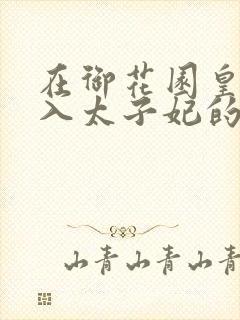 在御花园皇
入太子妃的
山青山青山青